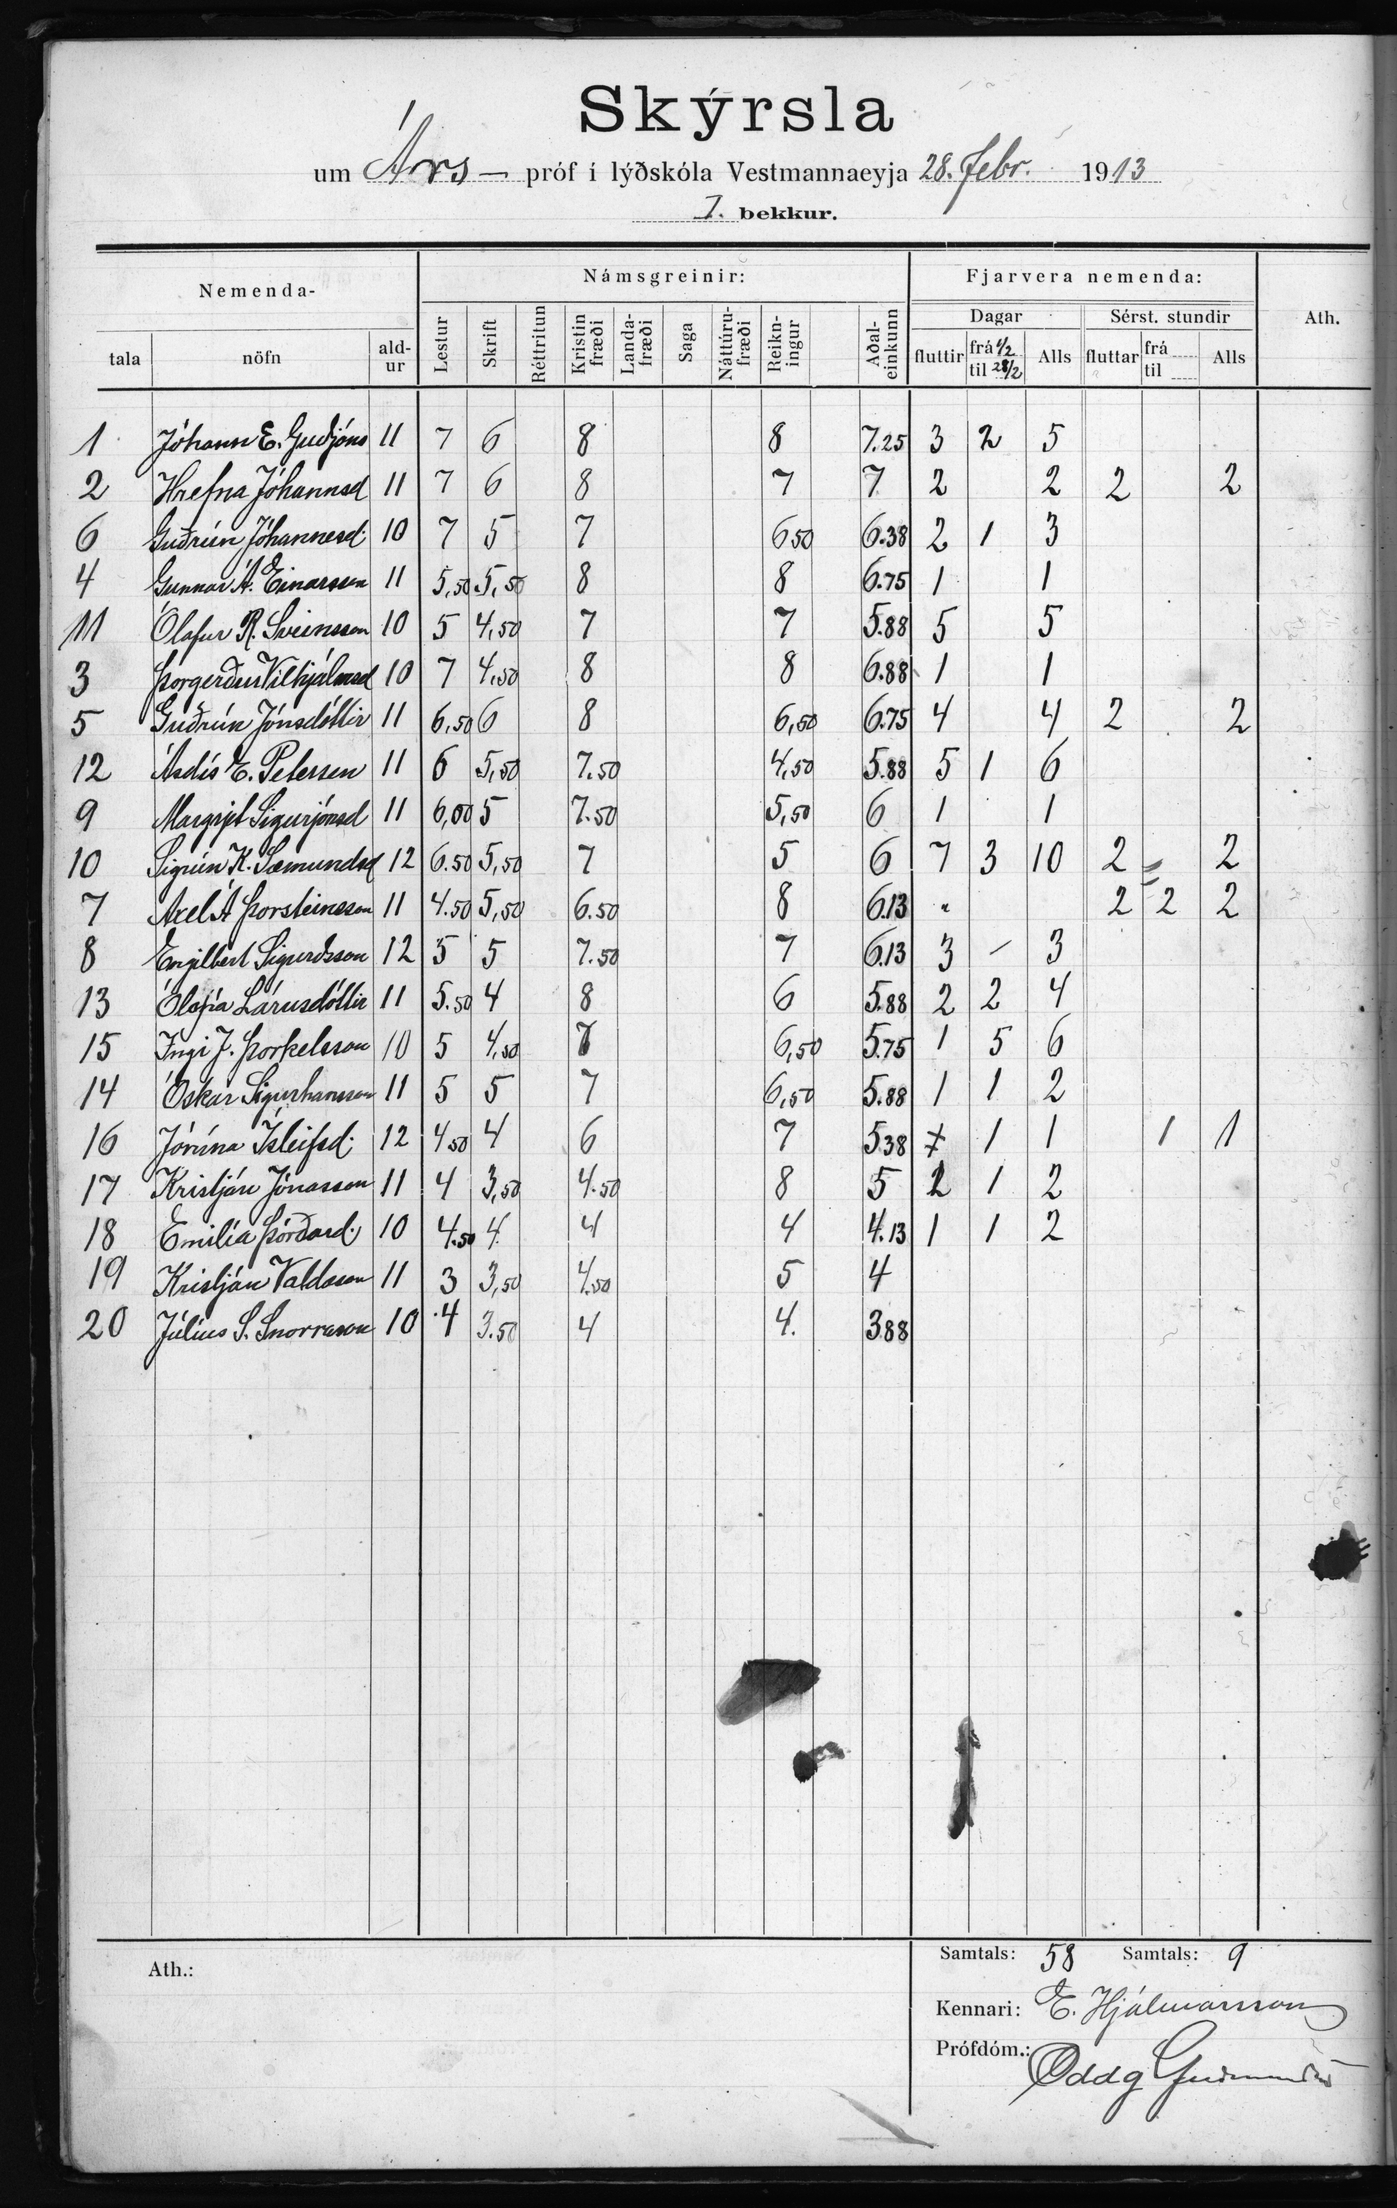 Skýrsla
um Árs- próf í lýðskóla Vestmannaeyja 28. febr. 1913
I. bekkur.
Nemenda- Námsgreinir: Fjarvera nemenda: Ath.
Dagar Sérst. stundir
tala nöfn ald-ur Lestur Skrift Réttritun Kristin fræði Landa-fræði Saga Náttúru-fræði Reikn-ingur Aðal-einkunn fluttir frá 1/2 til 28/2 Alls fluttar frá til Alls
1 Jóhann E. Guðjóns 11 7 6 8 8 7.25 3 2 5
2 Hrefna Jóhannsd 11 7 6 8 7 7 2 2 2 2
6 Guðrún Jóhannesd. 10 7 5 7 6 50 6.38 2 1 3
4 Gunnar Á. Einarsson 11 5,50 5,50 8 8 6.75 1 1
11 Ólafur R. Sveinsson 10 5 4,50 7 7 5.88 5 5
3 Þorgerður Vilhjálmsd 10 7 4,50 8 8 6.88 1 1
5 Guðrún Jónsdóttir 11 6,50 6 8 6,50 6.75 4 4 2 2
12 Ásdís E. Petersen 11 6 5,50 7.50 4,50 5.88 5 1 6
9 Margrjet Sigurjónsd 11 6,00 5 7.50 5,50 6 1 1
10 Sigrún K. Sæmundsd 12 6.50 5,50 7 5 6 7 3 10 2 2
7 Axel Á Þorsteinsson 11 4.50 5,50 6.50 8 6.13 " 2 2 2
8 Engilbert Sigurðsson 12 5 5 7.50 7 6.13 3 - 3
13 Ólafía Lárusdóttir 11 5.50 4 8 6 5.88 2 2 4
15 Ingi J. Þorkelsson 10 5 4,50 7 6,50 5.75 1 5 6
14 Óskar Sigurhansson 11 5 5 7 6,50 5.88 1 1 2
16 Jónína Ísleifsd. 12 4 50 4 6 7 5.38 1 1 1 1
17 Kristján Jónasson 11 4 3,50 4.50 8 5 2 1 2
18 Emilía Þórðard. 10 4.50 4. 4 4 4.13 1 1 2
19 Kristján Valdason 11 3 3,50 4.50 5 4
20 Júlíus S. Snorrason 10 4 3.50 4 4. 3.88
Ath.: Samtals: 58 Samtals: 9
Kennari: E. Hjálmarsson
Prófdóm.: Oddg Guðmunds